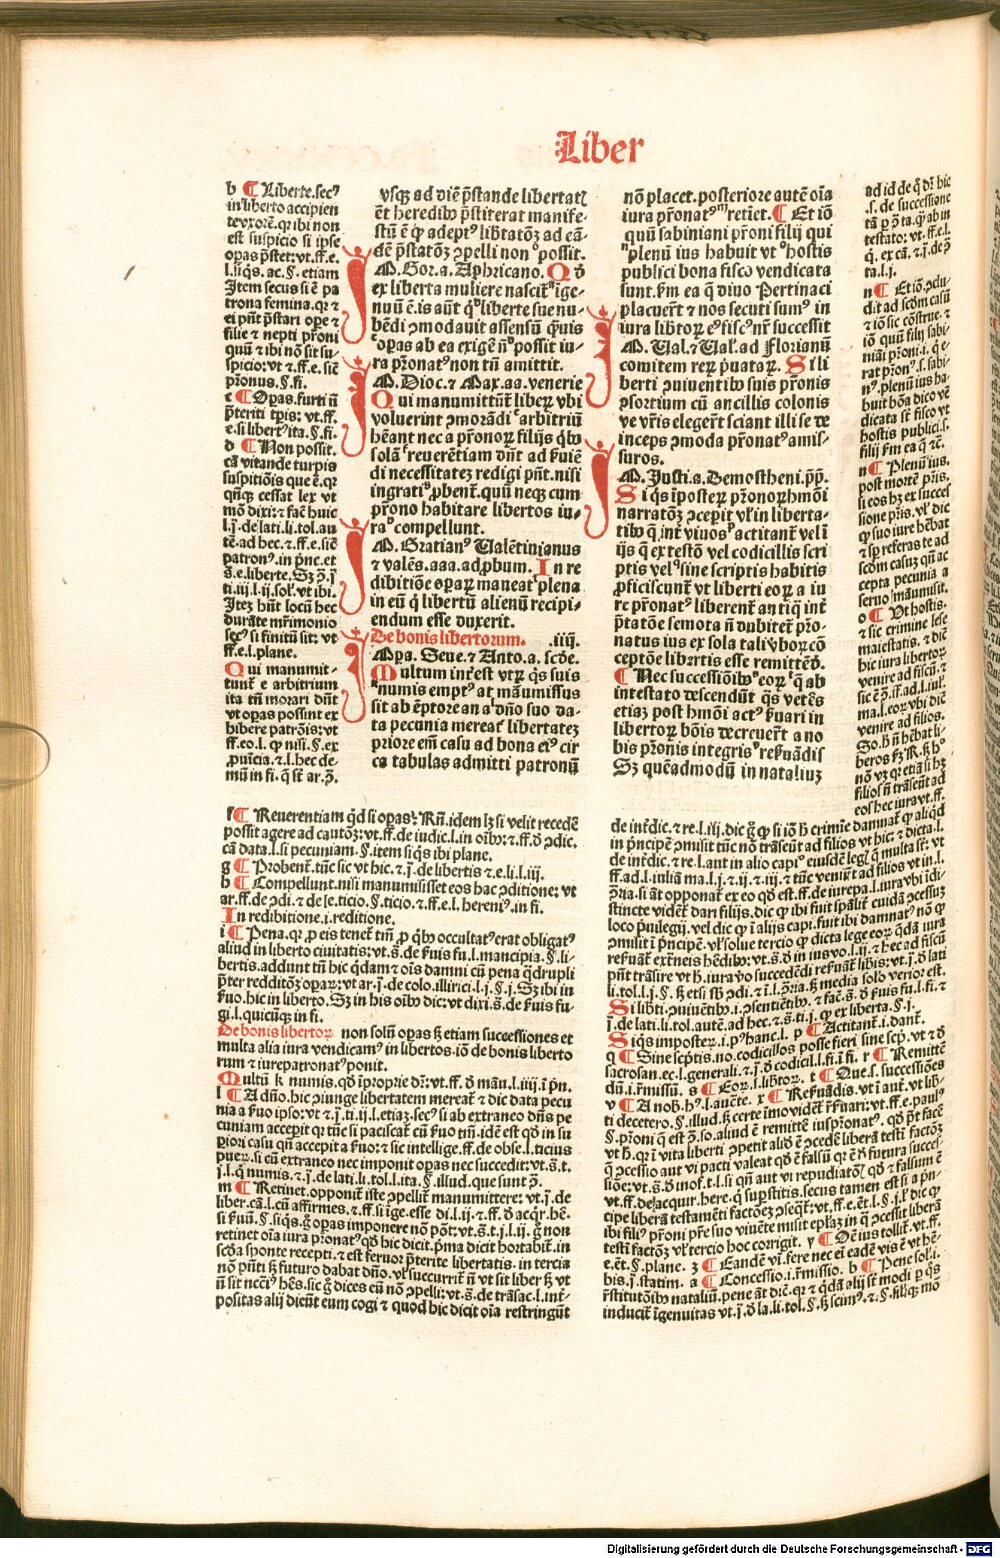 Liber
b ¶ Liberte.sec⁹
in liberto accipien
te vxorē.qꝛ ibi non
est suspicio si ipse
opas p̄stet:vt.ff.e.
l.si q̄s.ac.§.etiam
Item secus si ē pa
trona femina.qꝛ ⁊
ei pn̄t p̄stari oꝑe ⁊
filie ⁊ nepti pr̄oni
quū ⁊ ibi nō sit su-
spicio:vt ⁊.ff.e.siē
pr̄onus.§.fi.
c ¶ Oꝑas.furti n̄
p̄teriti tꝑis:vt.ff.
e.si libert⁹ita.§.fi.
d ¶ Non possit.
cā vitande turpis
suspitiōis que ē.qꝛ
qn̄qꝫ cessat lex vt
mō dixi:⁊ fac̄ huic
l.j̄.de lati.li.tol.au
tē.ad hec.⁊.ff.e.siē
patron⁹.in pn̄c.et
s̄.e.liberte.Sꝫ ꝯ.j̄
ti.iij.l.ij.sol⁹.vt ibi.
Itēꝫ hn̄t locū hec
durāte mr̄imonio
sec⁹ si finitū sit:vt
ff.e.l.plane.
Qui manumit-
tunt̄ e arbitrium
ita tn̄ morari dn̄t
vt opas possunt ex
hibere patrōis:vt
ff.eo.l. ꝙ nisi.§.ex
ꝓuīcia.⁊.l.hec de-
mū in fi.q̄ st̄ ar.ꝯ.
vsqꝫ ad diē p̄stande libertatꝭ
ēt heredibꝰ p̄stiterat manife-
stū ē ꝙ adept⁹ libtatōꝫ ad eā-
dē p̄statōꝫ ꝯpelli non possit.
A. Gor.a. Aphricano. Qd̓
ex liberta muliere nascit̄ īge-
nuū ē.is aūt q̓ libertesue nu-
bēdi ꝯmodauit assensū q̄uis
opas ab ea exigē n̄ possit iu-
ra pr̄onat⁹non tn̄ amittit.
A. Dioc.⁊ Max.aa.venerie
Qui manumittūt̄ liber̄ vbi
voluerint ꝯmorādi arbitriū
hēant nec a pr̄onoꝝ filijs q̓bꝰ
solā reuerētiam dn̄t ad ẜuiē
di necessitateꝫ redigi pn̄t.nisi
ingrati ꝓbent̄.quū neqꝫ cum
pr̄ono habitare libertos iu-
ra compellunt.
A. Gratian⁹ Ualētinianus
⁊ valēs.aaa.ad ꝓbum. In re
dibitiōe oꝑaꝝ maneat plena
in eū q̓ libertū alienū recipi-
endum esse duxerit.
De bonis libertorum. .iiij.
Apa. Seue.⁊ Anto.a. scd̄e.
Multum int̄est vtꝝ q̄s suis
numis empt⁹ at māumissus
sit ab ēptore an a dn̄o suo da-
ta pecunia mereat̄ libertateꝫ
priore em̄ casu ad bona ei⁹ cir
ca tabulas admitti patronū
nō placet.posteriore autē oīa
iura pr̄onat⁹ retiet.¶ Et iō
quū sabiniani pr̄oni filij qui
plenū ius habuit vt hostis
publici bona fisco vendicata
sunt.ẜm ea q̄ diuo Pertinaci
placuer̄t ⁊ nos secuti sum⁹ in
iura libtoꝝ e⁹ fisc⁹nr̄ successit
A. Ual.⁊ Ual.ad Florianū
comitem reꝝ p̄uataꝝ. Si li
berti ꝯuiuentibꝰ suis pr̄onis
ꝯsortium cū ancillis colonis
ve vr̄is eleger̄t sciant illi se de
inceps ꝯmoda pr̄onat⁹ amis-
suros.
A. Justi.a. Demostheni.pp̄.
Si q̄s īposteꝝ pr̄onoꝝ hmōi
narratōꝫ ꝯceꝑit vl̓ in liberta-
tibꝰ q̄ int̄ viuos actitant̄ vel ī
ijs q̄ ex testō vel codicillis scri
ptis vel sine scriptis habitis
ꝓficiscunt̄ vt liberti eoꝝ a iu
re pr̄onat⁹ liberent̄ antiq̄ int̄
p̄tatōe semota n̄ dubitet̄ pr̄o-
natus ius ex sola tali ꝟboꝝ cō
ceptōe libertis esse remittēd̓.
¶ Nec successiōibꝰ eoꝝ q̓ ab
intestato descendūt q̄s vetēs
etiaꝫ post hmōi act⁹ ẜuari in
libertoꝝ bōis decreuer̄t a no
bis pr̄onis integris reẜuādis
Sꝫ quēadmodū in nataliuꝫ
ad id de q̓ dr̄ hic
.s. de successione
tā ꝑ ꝯ̄ta.q̄ ab in
testato:vt.ff.e.l.
q̓. ex cā.⁊.j̄.de ꝑ
ta.l.j.
n ¶ Et iō.ꝯclu-
dit ad scd̄m casū
⁊ iō sic cōstrue.⁊
iō quū filij sabi-
niāi pr̄oni.i. q̓ e-
rat pron⁹.s.sabi-
n⁹.plenū ius ha-
buit bōa dico ve
dicata st̄ fisco vt
hostis publici.s.
filij ẜm ea q̄ ⁊c̄.
n ¶ Plenū ius.
post mortē pr̄is.
si eos hꝫ ex succes
sione pr̄is.vl̓ dic
ꝙ suo iure hēbat
⁊ sꝑ referas te ad
scd̄m casuꝫ qn̄ ac
cepta pecunia a
seruo māumisit.
o ¶ Vt hostis.
⁊ sic crimine lese
maiestatis.⁊ diē
hic iura libertoꝝ
venire ad fiscū:⁊
sic ē ꝯ̄.ff.ad.l.iul.
ma.l.eoꝝ vbi dic̄
venire ad filios.
So.h̄ n̄ hēbat li-
beros
nō vꝫ qꝛ etiā si hꝫ
filios n̄ trāseūt ad
eos hec iura vt.ff.
f ¶ Reuerentiam q̓d si opas:Rn̄.idem lꝫ si velit recedē
possit agere ad cautōꝫ:vt.ff.de iudic.l.in oībꝰ:⁊.ff.d̓ ꝯdic.
cā data.l.si pecuniam.§.item si q̄s ibi plane.
g ¶ Probent̄.tūc sic vt hic.⁊.j̄.de libertis ⁊.e.li.l.iij.
h ¶ Compellunt.nisi manumisisset eos hac ꝯditione:vt
ar.ff.de ꝯdi.⁊ de le.ticio.§.ticio.⁊.ff.e.l. hereni⁹.in fi.
In redibitione.i.reditione.
i ¶ Pena.qꝛ ꝓ eis tenet̄ tm̄ ꝓ q̓bꝰ occultat⁹erat obligat⁹
aliud in liberto ciuitatis:vt.s̄.de ẜuis fu.l.mancipia.§.li-
bertis.addunt tn̄ hic q̓dam ⁊ oīs damni cū pena q̄drupli
p̄ter redditōꝫ oꝑaꝝ:vt ar.j̄.de colo.illirici.l.j.§.j.Sꝫ ibi in
ẜuo.hic in liberto.Sꝫ in his oībꝰ dic:vt dixi.s̄.de ẜuis fu-
gi.l.quicūqꝫ in fi.
De bonis libertoꝝ non solū opas sꝫ etiam successiones et
multa alia iura vendicam⁹ in libertos.iō de bonis liberto
rum ⁊ iurepatronat⁹ponit.
Multū k numis.qd̓ īproprie dr̄:vt.ff.d̓ māu.l.iiij.ī pn̄.
l ¶ A dn̄o.hic ꝯiunge libertatem mereat̄ ⁊ dic data pecu
nia a ẜuo ipso:vt ⁊.j̄.ti.ij.l.etiaꝫ.sec⁹ si ab extraneo dn̄s pe
cuniam accepit qꝛ tūc si paciscat̄ cū ẜuo tm̄.idē est qd̓ in su
ꝑiori casu qn̄ accepit a ẜuo:⁊ sic intellige.ff.de obse.l.ticius
pueꝝ.si cū extraneo nec imponit opas nec succedit:vt.s̄.t.
j̄.l.q̓ numis.⁊.j̄.de lati.li.tol.l.ita.§.illud.que sunt ꝯ̄.
m ¶ Retinet.opponit̄ iste ꝯpellit̄ manumittere:vt.j̄.de
liber.cā.l.cū affirmes.⁊.ff.si īge.esse di.l.ij.⁊.ff.d̓ acq̓r.hē-
si ẜuū.§.si q̄s.g̊ opas imponere nō pōt:vt.s̄.t.j.l.ij.g̊ non
retinet oīa iura pr̄onat⁹ qd̓ hic dicit.p̄ma dicit hortabit̄.in
scd̓a sponte recepti.⁊ est feruor p̄terite libertatis.in tercia
nō pn̄ti sꝫ futuro dabat dn̄o.vl̓ succurrit̄ n̄ vt sit liber sꝫ vt
n̄ sit necc̄i⁹ hēs.sic g̊ dices cū nō ꝯpelli:vt.s̄.de trāsac.l.int̄-
positas alij dicūt eum cogi ⁊ quod hic dicit oīa restringūt
de int̄dic.⁊ re.l.iij.dic g̊ ꝙ si iō h̄ crimīe damnat̄ ꝙ aliq̓d
in p̄ncipē ꝯmisit tūc nō trāseūt ad filios vt hic.⁊ dicta.l.
de int̄dic.⁊ re.l.aut in alio capi⁹ eiusdē leg꜀ q̄ multa st̄:vt
ff.ad.l.iuliā ma.l.j.⁊.ij.⁊.iij.⁊ tūc veniūt ad filios vt in.l.
ꝯ̄ria.si āt opponat̄ ex eo qd̓ est.ff.de iurepa.l.iura vbi īdi-
stincte vident̄ dari filijs.dic ꝙ ibi fuit spāliť cuidā ꝯcessuꝫ
loco p̄uilegij.vel dic ꝙ ī alijs capi.fuit ibi damnat⁹ nō ꝙ
ꝯmisit ī p̄ncipē.vl̓ solue tercio ꝙ dicta lege eoꝝ q̓dā iura
reẜuāt̄ ext̄neis hēdibꝰ:vt.s̄.d̓ in ius vo.l.ij.⁊ hec ad fiscū
pn̄t trāsire vt h̄.iura ꝟo succedēdi reẜuāt̄ libis:vt.j̄.d̓ lati
li.tol.l.j.§.sꝫ etsi sb̄ ꝯdi.⁊ ī.l.ꝯ̄ria.sꝫ media solo verior est.
Si libti.ꝯuiuētibꝰ.i.ꝯsentiētibꝰ.⁊ fac̄.s̄.d̓ ẜuis fu.l.fi.⁊
j̄.de lati.li.tol.autē.ad hec.⁊.s̄.ti.j. ꝙ ex liberta.§.j.
Si q̄s imposteꝝ.i.p⁹hanc.l. p ¶ Actitant̄.i.dant̄.
q ¶ Sine scp̄tis.no.codicillos posse fieri sine scp̄.vt ⁊ d̓
sacrosan.ec.l.generali.⁊.j̄.d̓ codicil.l.fi.ī fi. r ¶ Remittē
dū.i.r̄missū. s ¶ Eoꝝ.s.libtoꝝ. t ¶ Que.s.successiōes
v ¶ A nob.h⁹.l.auc̄te. x ¶ Reẜuādis.vt ī aut̄.vt lib-
ti decetero.§.illud.sꝫ certe īmo vidēt̄ r̄ẜuari:vt.ff.e.paul⁹
§.pr̄oni q̄ est ꝯ̄.so.aliud ē remittē iuspr̄onat⁹. qd̓ pōt facē
vt h̄.qꝛ ī vita liberti ꝯpetit aliud ē ꝯcedē liberā testi factōꝫ
q̄ ꝯcessio aut vi pacti valeat qd̓ ē falsū qꝛ ē d̓ futura succes
siōe:vt.s̄.d̓ inof.t.l.si qn̄ aut vi repudiatōl̓ qd̓ ⁊ falsum ē
vt.ff.de acquir.here.q̓ suꝑstitis.secus tamen est si a p̄n-
cipe libera testamēti factōeꝫ ꝯseq̄t̄:vt.ff.e.ēt.l.§.j.l̓ dic ꝙ
ibi fili⁹ pr̄oni p̄re suo viuēte misit epl̄aꝫ in q̄ ꝯcessit liberā
testi factōꝫ vl̓ tercio hoc corrigit. y ¶ Dē ius tollit̄.vt.ff.
e.ēt.§.plane. z ¶ Eandē vī.fere nec eī eadē vis ē vt hē-
bis.j̄.statim. a ¶ Concessio.i.r̄missio. b ¶ Pene sol⁹.i.
r̄stitutōibꝰ nataliū.pene āt dic̄.qꝛ ⁊ q̓dā alij st̄ modi ꝑ q̄s
inducit̄ īgenuitas vt.j̄.d̓ la.li.tol.§.sꝫ scim⁹.⁊.§.filiqꝫ mō
Digitalisierung gefördert durch die Deutsche Forschungsgemeinschaft - DFG